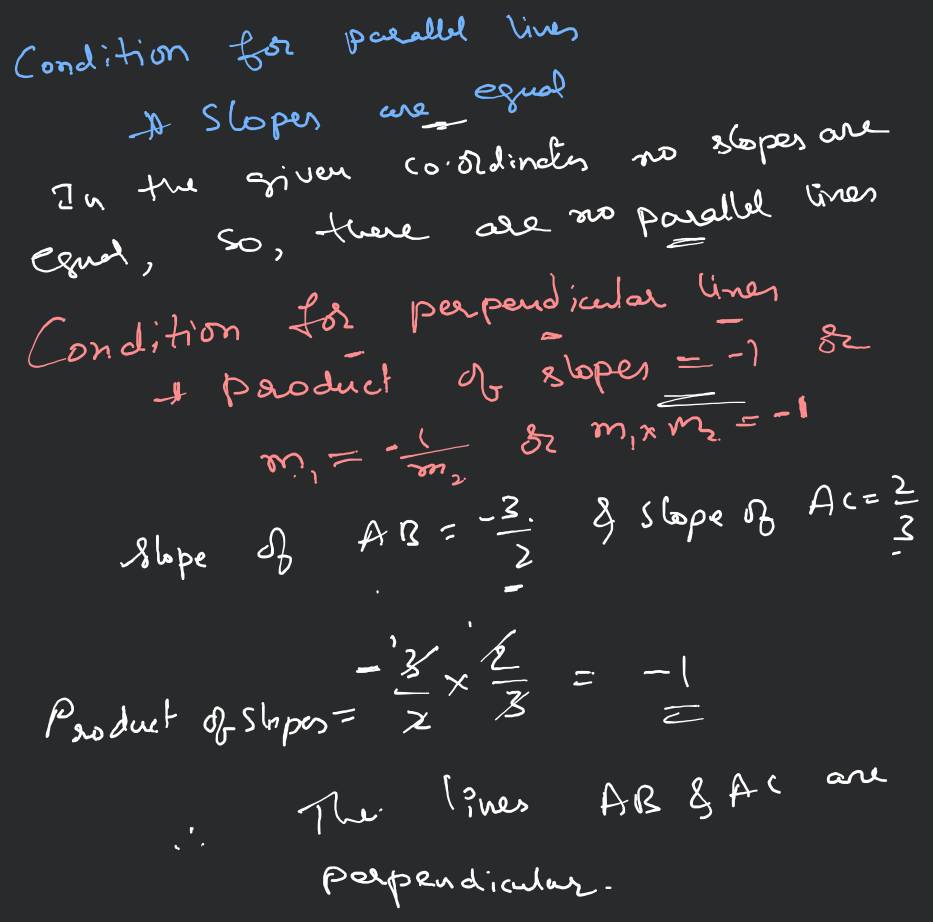 Condition for parallel lines
→ Slopes are equal
In the given co-ordinates no slopes are
equal, so, there are no parallel lines
Condition for perpendicular lines
→ product of slopes = -1 or
m₁ = -1/m₂ or m₁ × m₂ = -1
slope of AB = -3/2 & slope of AC = 2/3
Product of slopes = -3/2 × 2/3 = -1
∴ The lines AB & AC are
perpendicular.